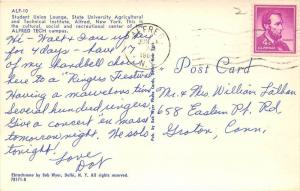 ALF-10
Student Union Lounge, State University Agricultural
and Technical Institute, Alfred, New York. This is
the cultural, social and recreational center of
ALFRED TECH campus.
Hi - Walt - I am up here
for 4 days - have 17
of my Handbell choir
here to a "Ringers Festival."
Having a marvelous time
Several hundred ringers
Give a concert en masse
tomorrow night. We solo
tonight!
Love
Dot
Ektachrome by Bob Wyer, Delhi, N. Y. All rights reserved.
Post Card
Mr. & Mrs William Lathan
658 Eastern Pt. Rd
Groton, Conn.